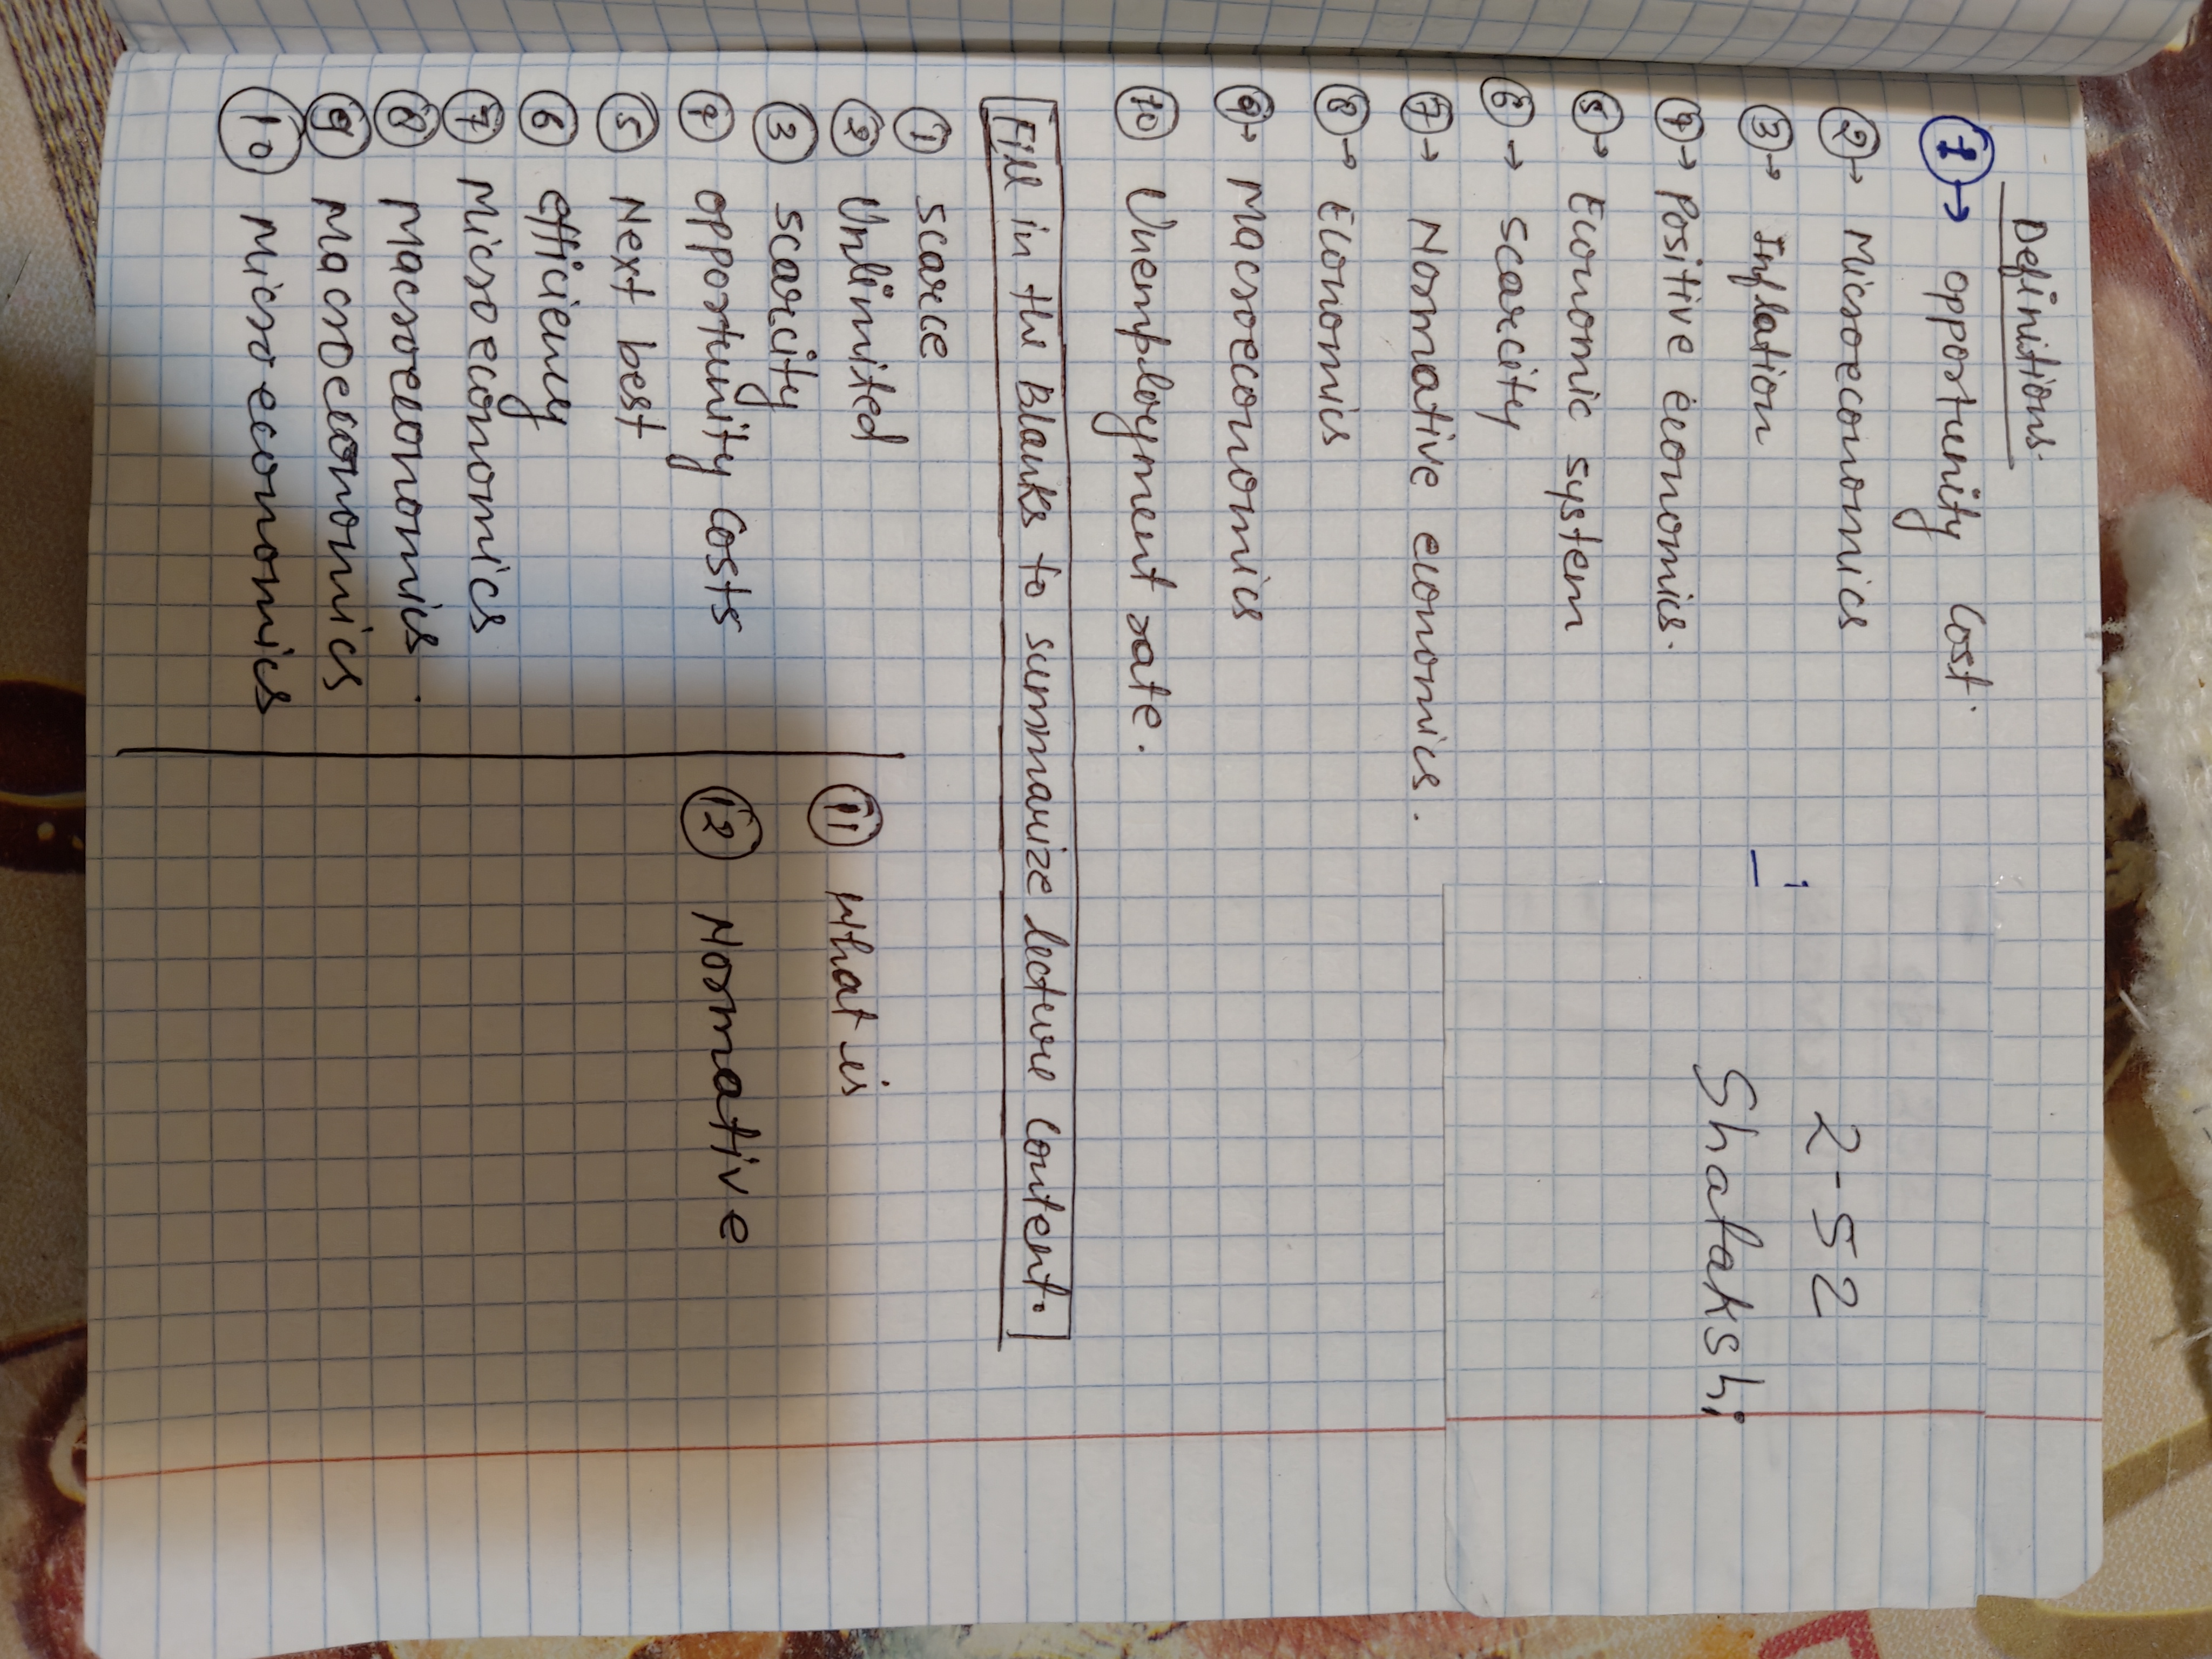 Definitions.
① → opportunity cost.
② → Microeconomics
③ → Inflation
④ → Positive economics.
⑤ → Economic system
⑥ → scarcity
⑦ → Normative economics.
⑧ → Economics
⑨ → Macroeconomics
⑩ Unemployment rate.
2-52
Shatakshi
Fill in the Blanks to summarize lecture content.
① scarce
② Unlimited
③ scarcity
④ opportunity costs
⑤ Next best
⑥ efficiency
⑦ Microeconomics
⑧ Macroeconomics.
⑨ Macroeconomics
⑩ Microeconomics
⑪ What is
⑫ Normative